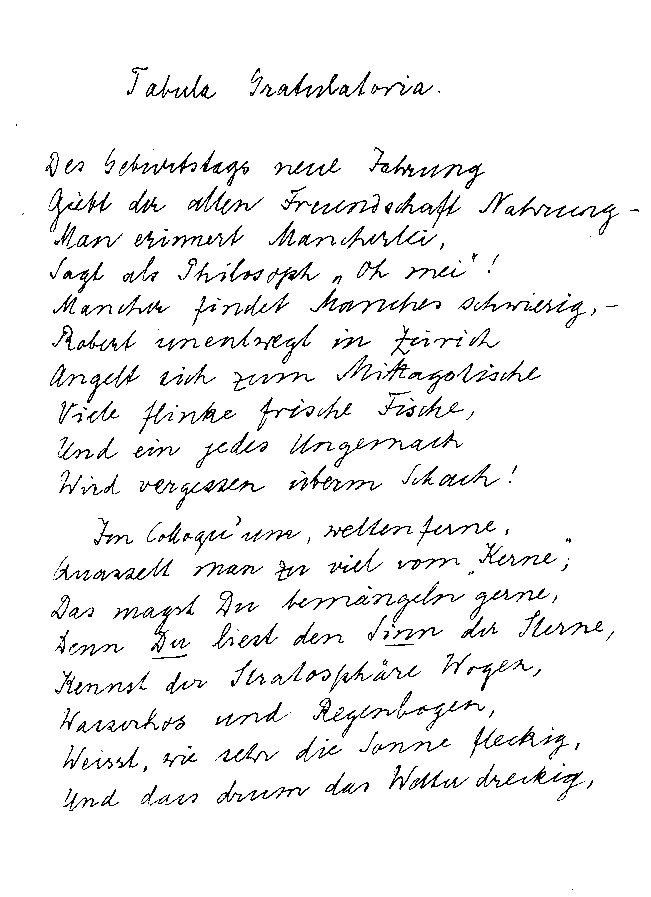 Tabula Gratulatoria.
Des Geburtstags neue Jahrung
Giebt der alten Freundschaft Nahrung –
Man erinnert Mancherlei,
Sagt als Philosoph „Oh mei"!
Mancher findet Manches schwierig, –
Robert unentwegt in Zürich
Angelt sich zum Mittagstische
Viele flinke frische Fische,
Und ein jedes Ungemach
Wird vergessen überm Schach!
Im Colloqu'um, weltenferne,
Quasselt man zu viel vom „Kerne";
Das magst Du bemängeln gerne,
Denn Du liest den Sinn der Sterne,
Kennst der Stratosphäre Wogen,
Wasserhos und Regenbogen,
Weisst, wie sehr die Sonne fleckig,
Und dass drum das Wetter dreckig,